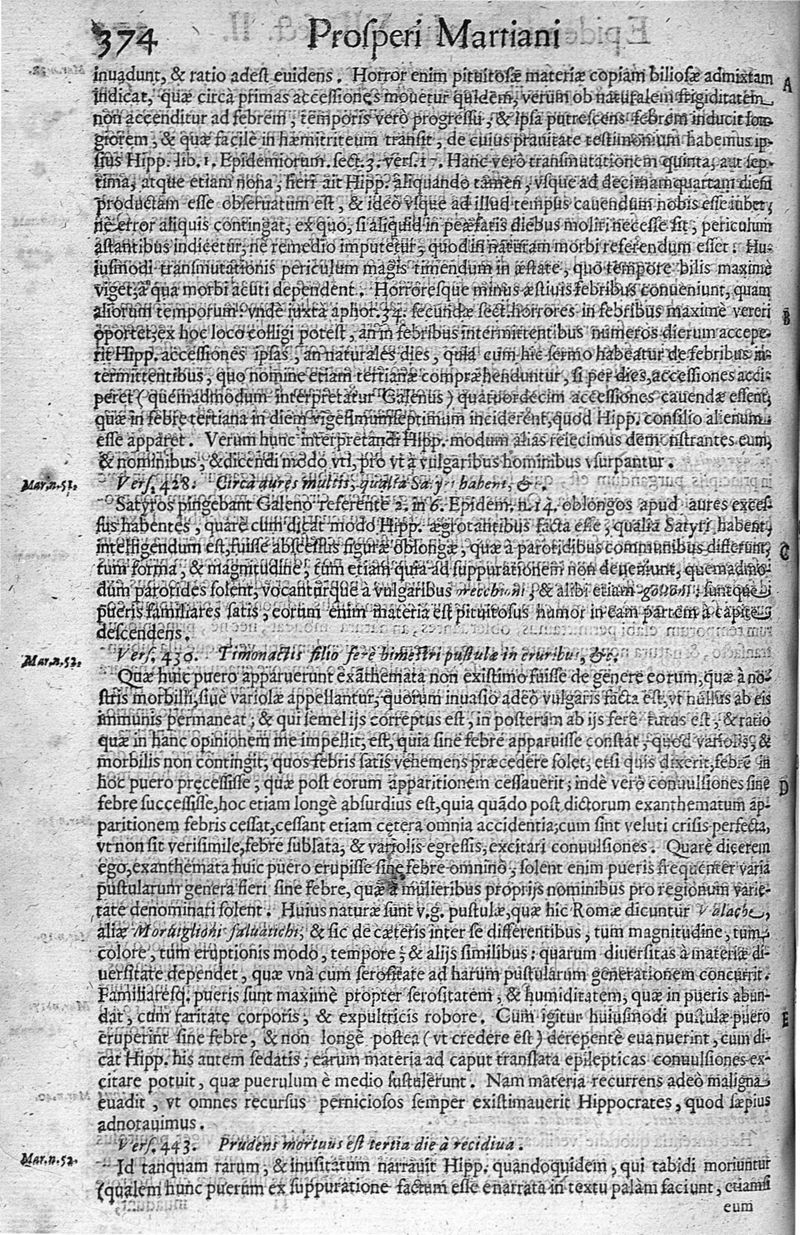 374 Prosperi Martiani
inuadunt, & ratio adest euidens. Horror enim pituitosæ materiæ copiam biliosæ admixtam
indicat, quæ circa primas accessiones mouetur quidem, verum ob naturalem frigiditatem
non accenditur ad febrem, temporis verò progressu, & ipsa putrescens febrem inducit lon-
giorem, & quæ facilè in hæmitriteum transit, de cuius prauitate testimonium habemus ip-
sius Hipp. lib. 1. Epidemiorum. sect. 3. vers. 17. Hanc verò transmutationem quinta, aut sep-
tima, atque etiam nona, fieri ait Hipp. aliquando tamen, vsque ad decimamquartam diem
productam esse obseruatum est, & ideò vsque ad illud tempus cauendum nobis esse iubet,
nè error aliquis contingat, ex quo, si aliquid in præfatis diebus moliri necesse sit, periculum
astantibus indicetur, nè remedio imputetur, quod in naturam morbi referendum esset. Hu-
iusmodi transmutationis periculum magis timendum in æstate, quo tempore bilis maximè
viget, à qua morbi acuti dependent. Horroresque minus æstiuis febribus conueniunt, quam
aliorum temporum. vndè iuxta aphor. 34. secundæ sect. horrores in febribus maximè vereri
oportet; ex hoc loco colligi potest, an in febribus intermittentibus numeros dierum accepe-
rit Hipp. accessiones ipsas, an naturales dies, quia cum hic sermo habeatur de febribus in-
termittentibus, quo nomine etiam tertianæ compræhenduntur, si per dies, accessiones acci-
peret (quemadmodum interpretatur Galenus) quatuordecim accessiones cauendæ essent,
quæ in febre tertiana in diem vigesimumseptimum inciderent, quod Hipp. consilio alienum
esse apparet. Verum hunc interpretandi Hipp. modum alias reiecimus demonstrantes eum,
& nominibus, & dicendi modo vti, pro vt à vulgaribus hominibus vsurpantur.
Mar.n.51. Vers. 428. Circa aures multis, qualia Satyri habent, &c.
Satyros pingebant Galeno referente 2. in 6. Epidem. n. 14. oblongos apud aures exces-
sus habentes, quare cum dicat modo Hipp. ægrotantibus facta esse, qualia Satyri habent,
intelligendum est, fuisse abscessus figuræ oblongæ, quæ à parotidibus communibus differunt,
tum forma, & magnitudine, tum etiam quia ad suppurationem non deueniunt, quemadmo-
dum parotides solent, vocanturque à vulgaribus orecchioni, & alibi etiam suntque
pueris familiares satis, eorum enim materia est pituitosus humor in eam partem à capite
descendens.
Mar.n.52. Vers. 430. Timonactis filio ferè bimestri pustulæ in cruribus, &c.
Quæ huic puero apparuerunt exanthemata non existimo fuisse de genere eorum, quæ à no-
stris morbilli, siuè variolæ appellantur, quorum inuasio adeò vulgaris facta est, vt nullus ab eis
immunis permaneat, & qui semel ijs correptus est, in posterum ab ijs ferè tutus est, & ratio
quæ in hanc opinionem me impellit, est, quia sinè febre apparuisse constat, quod variolis, &
morbilis non contingit, quos febris satis vehemens præcedere solet, etsi quis dixerit, febrē in
hoc puero pręcessisse, quæ post eorum apparitionem cessauerit; indè verò conuulsiones sinè
febre successisse, hoc etiam longè absurdius est, quia quādo post dictorum exanthematum ap-
paritionem febris cessat, cessant etiam cętera omnia accidentia; cum sint veluti crisis perfecta,
vt non sit verisimile, febre sublata, & variolis egressis, excitari conuulsiones. Quarè dicerem
ego, exanthemata huic puero erupisse sinè febre omninò, solent enim pueris frequenter varia
pustularum genera fieri sine febre, quæ à mulieribus proprijs nominibus pro regionum varie-
tate denominari solent. Huius naturæ sunt v.g. pustulæ, quæ hic Romæ dicuntur
aliæ Moruiglioni saluatichi; & sic de cæteris inter se differentibus, tum magnitudine, tum
colore, tum eruptionis modo, tempore, & alijs similibus: quarum diuersitas à materiæ di-
uersitate dependet, quæ vnà cum serositate ad harum pustularum generationem concurrit.
Familiaresq. pueris sunt maximè propter serositatem, & humiditatem, quæ in pueris abun-
dat, cum raritate corporis, & expultricis robore. Cum igitur huiusmodi pustulæ puero
eruperint sine febre, & non longè postea (vt credere est) derepentè euanuerint, cum di-
cat Hipp. his autem sedatis; earum materia ad caput translata epilepticas conuulsiones ex-
citare potuit, quæ puerulum è medio sustulerunt. Nam materia recurrens adeò maligna
euadit, vt omnes recursus perniciosos semper existimauerit Hippocrates, quod sæpius
adnotauimus.
Vers. 443. Prudens mortuus est tertia die à recidiua.
Mar.n.52. Id tanquam rarum, & inusitatum narrauit Hipp. quandoquidem, qui tabidi moriuntur
(qualem hunc puerum ex suppuratione factum esse enarrata in textu palàm faciunt, etiamsi
eum
A
B
C
D
E